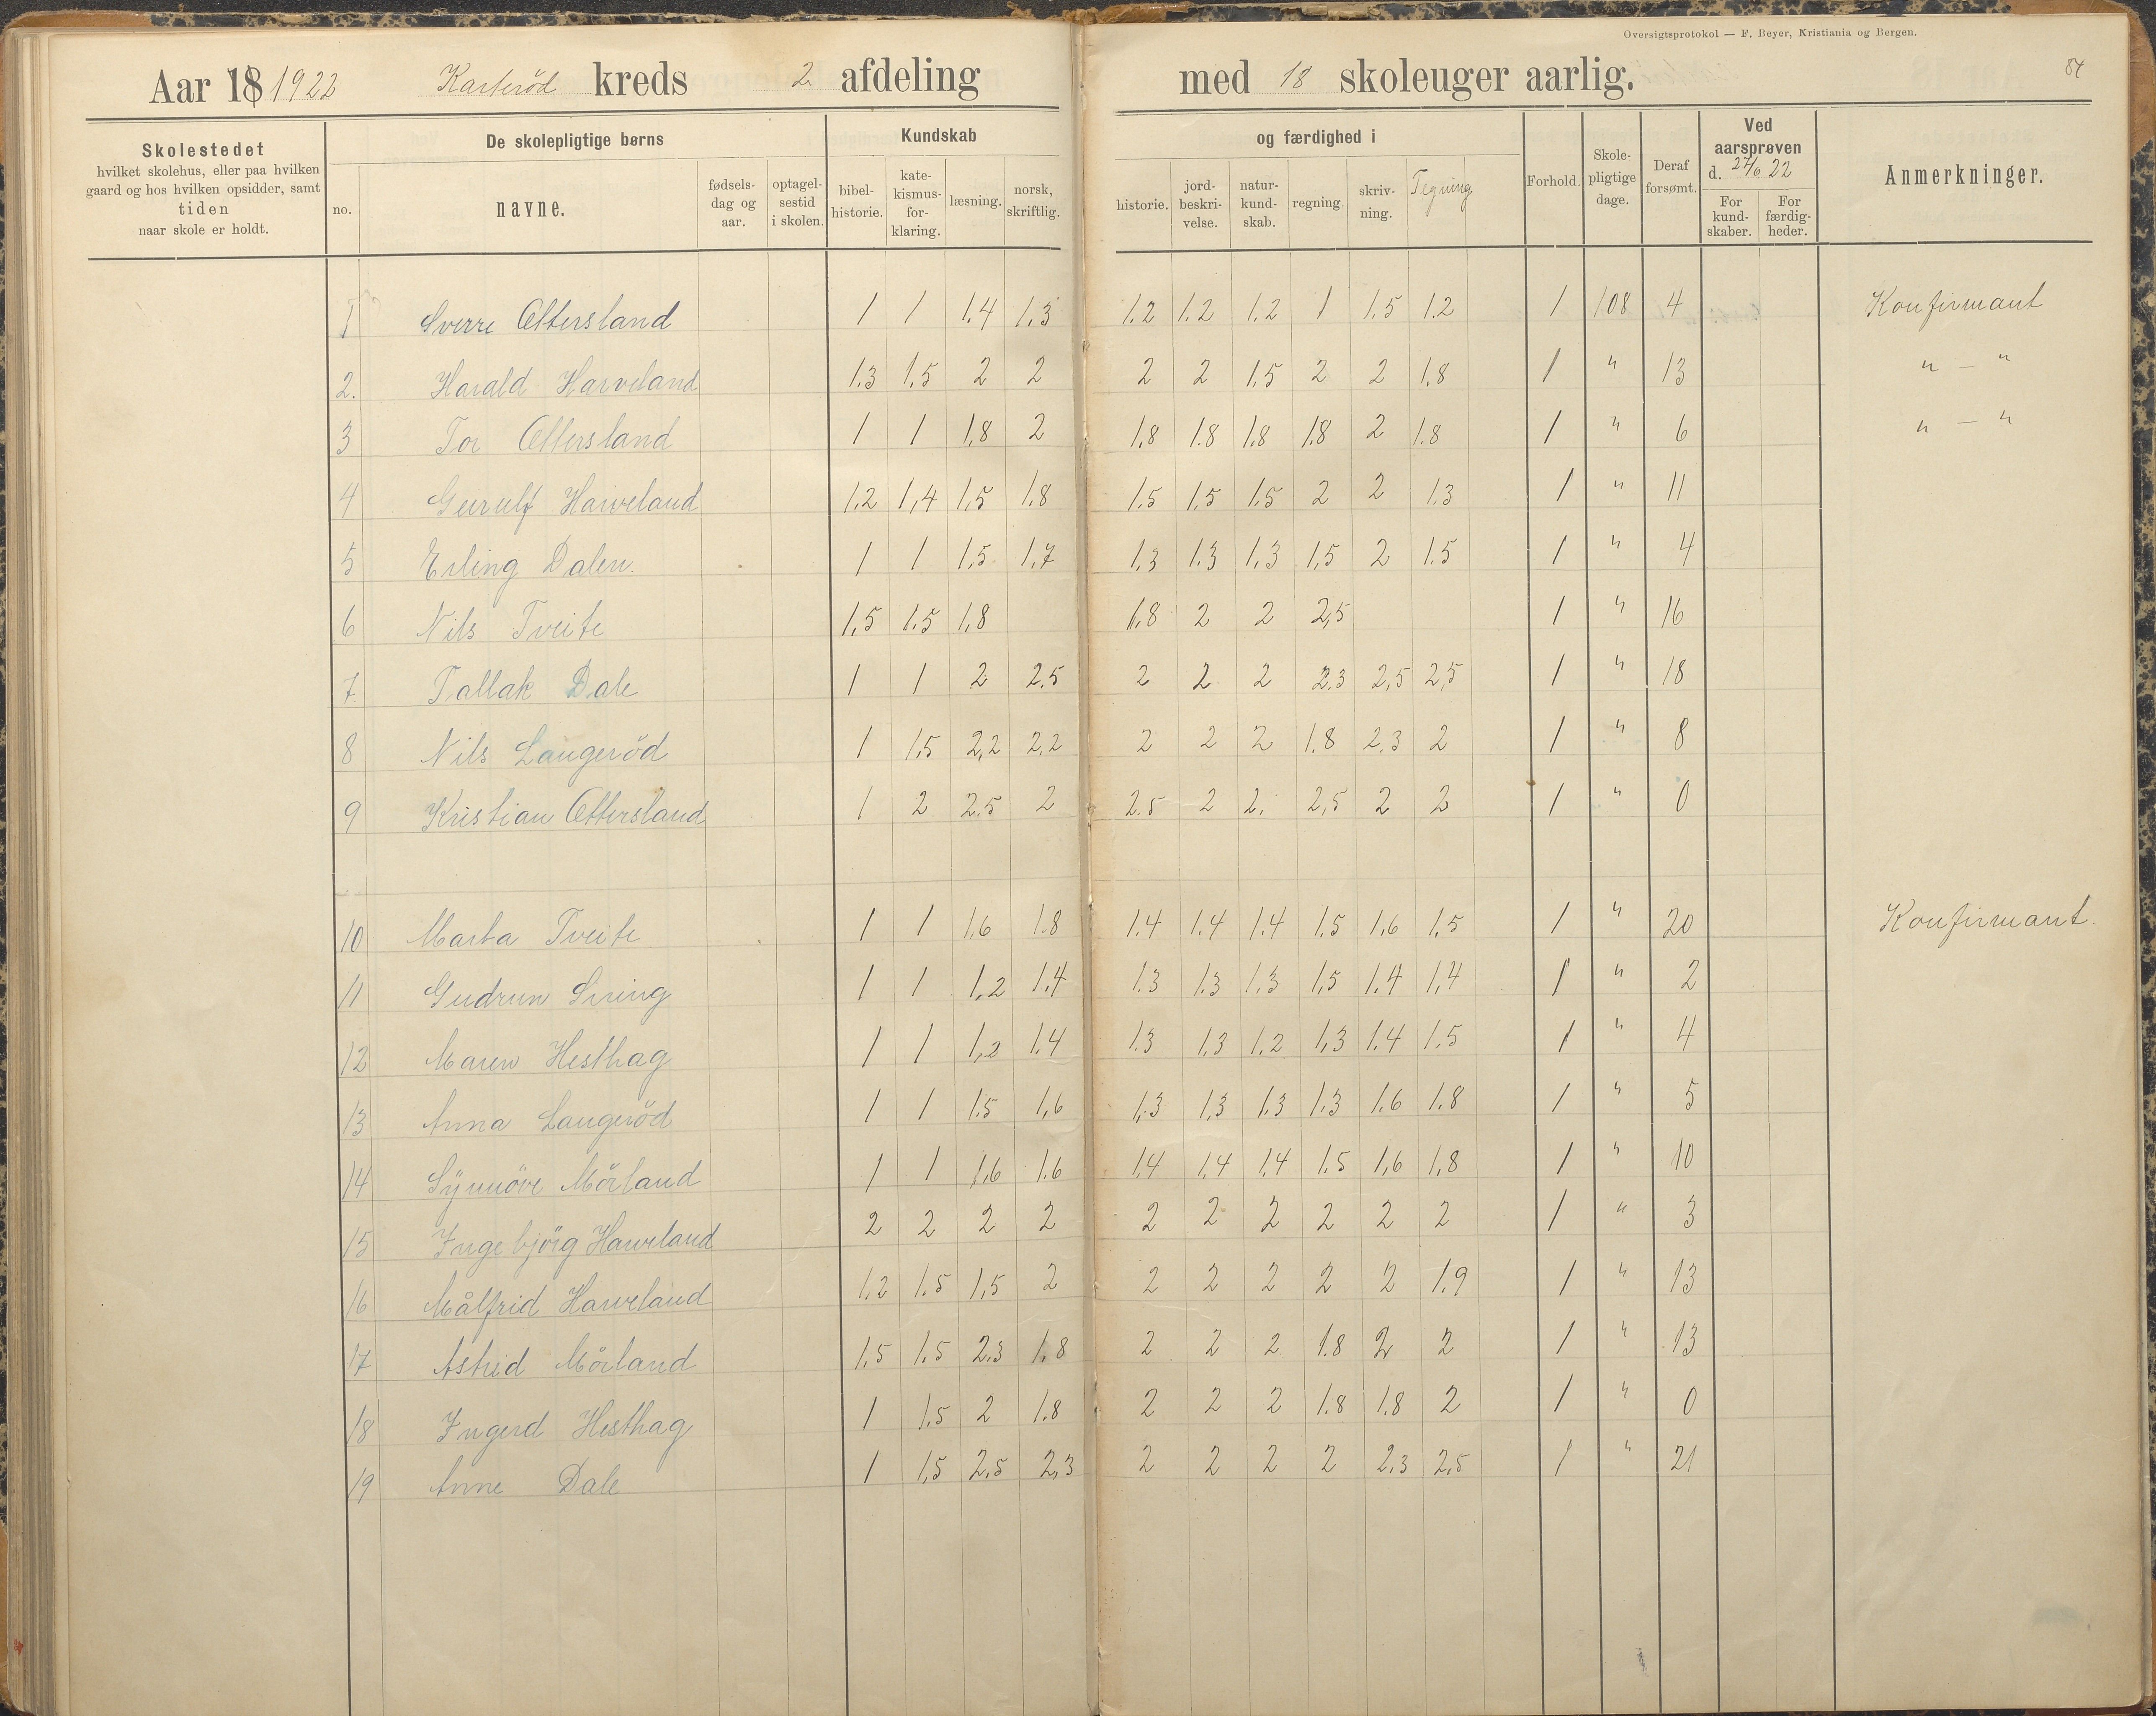 Oversigtsprotokol — F. Beyer, Kristiania og Bergen.
84
Aar 18 1922 Karteröd kreds 2 afdeling med 18 skoleuger aarlig.
Skolestedet
hvilket skolehus, eller paa hvilken
gaard og hos hvilken opsidder, samt
tiden
naar skole er holdt.
De skolepligtige børns
no. navne. fødsels-dag og aar. optagel-sestid i skolen.
Kundskab og færdighed i
bibel-historie. kate-kismus-for-klaring. læsning. norsk, skriftlig. historie. jord-beskri-velse. natur-kund-skab. regning. skriv-ning. Tegning
Forhold. Skole-pligtige dage. Deraf forsømt.
Ved aarsprøven d. 27/6 22
For kund-skaber. For færdig-heder.
Anmerkninger.
1 Sverre Ættersland 1 1 1.4 1.3 1.2 1.2 1.2 1 1.5 1.2 1 108 4 Konfirmant
2. Harald Harveland 1.3 1,5 2 2 2 2 1.5 2 2 1,8 1 " 13 " — "
3 Tor Ættersland 1 1 1,8 2 1.8 1.8 1.8 1.8 2 1.8 1 " 6 " — "
4 Geirulf Harveland 1.2 1,4 1,5 1.8 1.5 1,5 1.5 2 2 1.3 1 " 11
5 Erling Dalen. 1 1 1,5. 1,7 1.3 1.3 1,3 1,5 2 1.5 1 " 4
6 Nils Tveite 1,5 1.5 1,8 1.8 2 2 2,5 1 " 16
7. Tallak Dale 1 1 2 2.5 2 2 2 2.3 2,5 2,5 1 " 18
8 Nils Langeröd 1 1,5 2,2 2,2 2 2 2 1.8 2.3 2 1 " 8
9 Kristian Ættersland 1 2 2.5 2 2.5 2 2. 2,5 2 2 1 " 0
10 Marta Tveite 1 1 1.6 1.8 1.4 1.4 1.4 1.5 1,6 1,5 1 " 20 Konfirmant.
11 Gudrun 1 1 1,2 1.4 1.3 1.3 1.3 1,5 1.4 1,4 1 " 2
12 Maren Hesthag 1 1 1,2 1.4 1.3 1.3 1.2 1,3 1.4 1.5 1 " 4
13 Anna Langeröd 1 1 1.5 1,6 1,3 1,3 1.3 1.3 1.6 1.8 1 " 5
14 Synnöve Mörland 1 1 1,6 1.6 1.4 1,4 1,4 1.5 1,6 1,8 1 " 10
15 Ingebjörg Harveland 2 2 2 2 2 2 2 2 2 2 1 " 3
16 Målfrid Harveland 1.2 1.5 1,5 2 2 2 2 2 2 1.9 1 " 13
17 Astrid Mörland 1.5 1.5 2.3 1.8 2 2 2 1.8 2 2 1 " 13
18 Ingerd Hesthag 1 1.5 2 1.8 2 2 2 1.8 1.8 2 1 " 0
19 Anne Dale 1 1,5 2,5 2,3 2 2 2 2 2,3 2,5 1 " 21